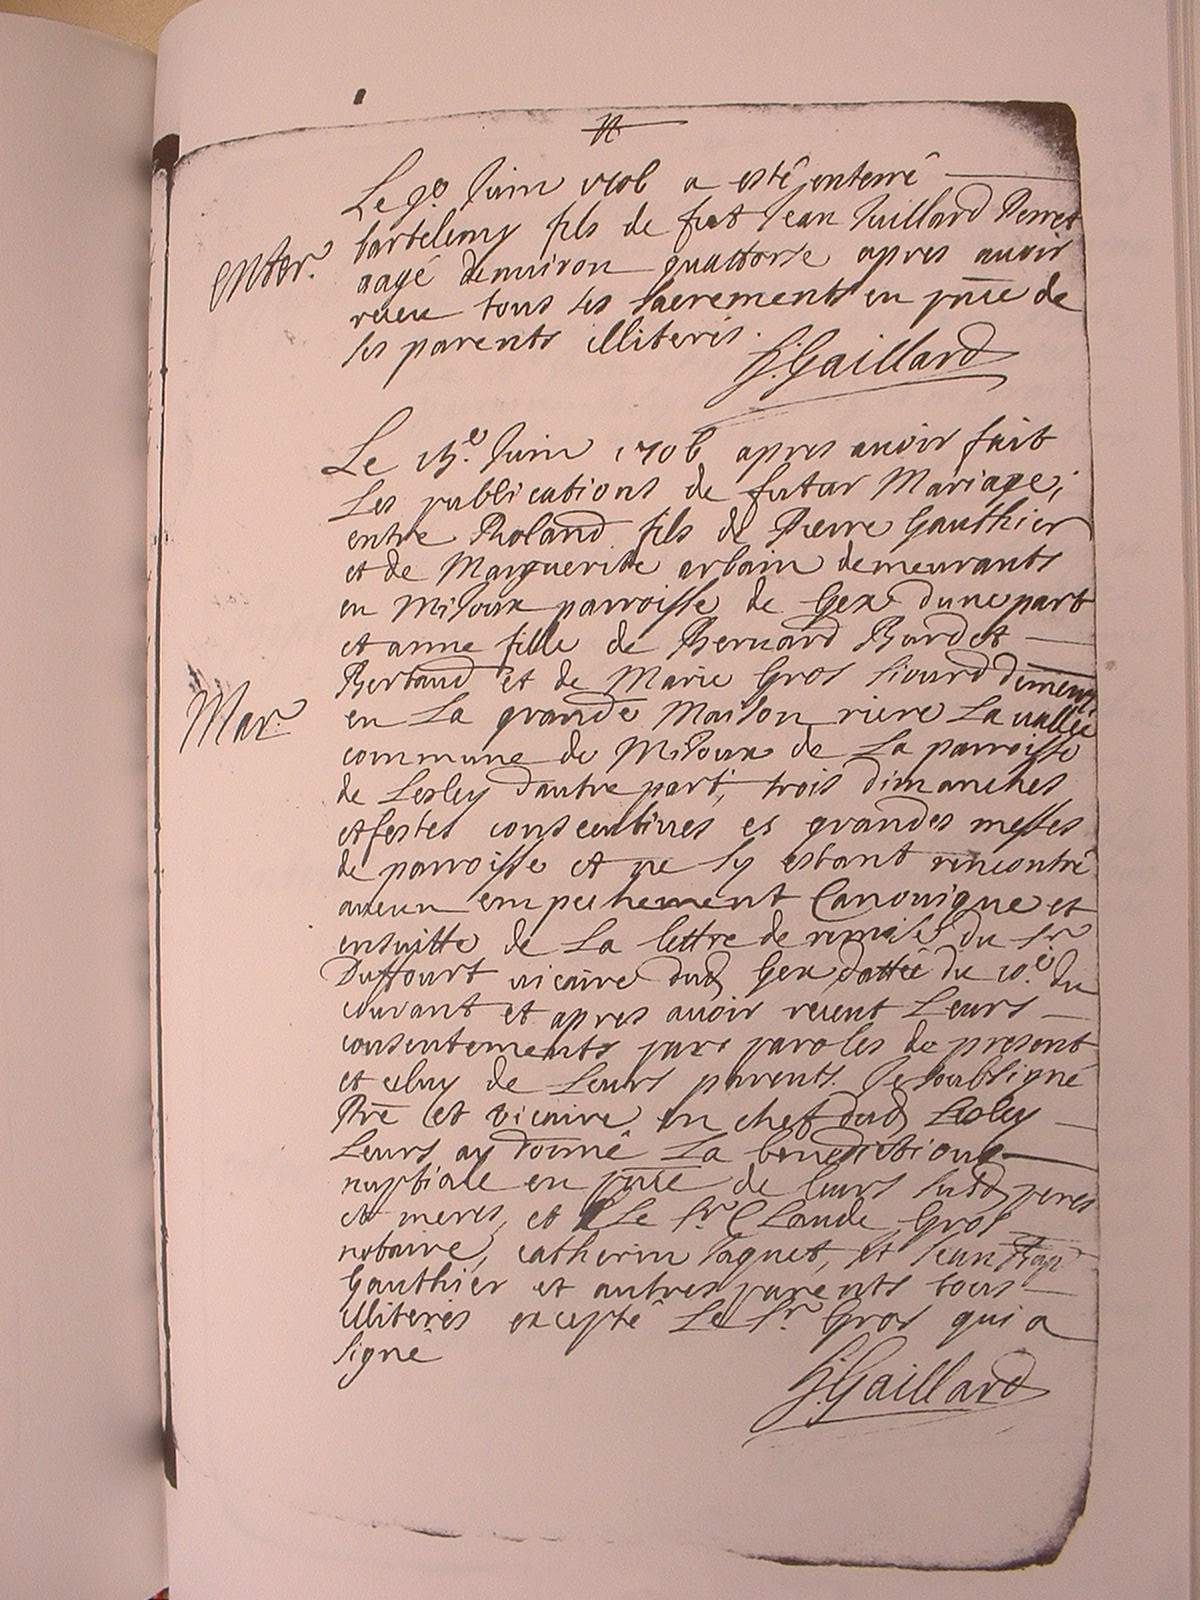 Le 9e Juin 1706 a esté enterré
Enter.
bartelemy fils de fut Jean Juillard Perret
aagé denuiron quattorse apres auoir
receu tous ses sacrements en pnce de
ses parents illiterés.
G. Gaillard
Le 15e. Juin 1706 apres auoir fait
Les publications de futur Mariage,
entre Roland fils de Pierre Gauthier
et de Marguerite arbain demeurants
en Mijoux parroisse de Gex dune part
et anne fille de Bernard Burdet
Mar.
Bertaud et de Marie Gros
en La grande Maison riere La vallée
commune de Mijoux de La parroisse
de Lesley dautre part, trois dimanches
et festes consecutiues es grandes messes
de parroisse et ne sy estant rencontré
aucun empechement Canonique et
ensuitte de La lettre de remise du Sr
Duffourt vicaire dud Gex dattée du 10e. du
courant et apres auoir receut Leurs
consentements pare paroles de present
et celuy de Leurs parents. Je soubsigné
Pre et vicaire en chef dud Lesley
Leurs ay donné La benediction
nuptiale en pnce de leurs susd peres
et meres, et Le Sr Claude Gros
notaire, catherin Paquet, et Jean
Gauthier et autres parents tous
illiterés excepté Le Sr Gros qui a
signé
G. Gaillard